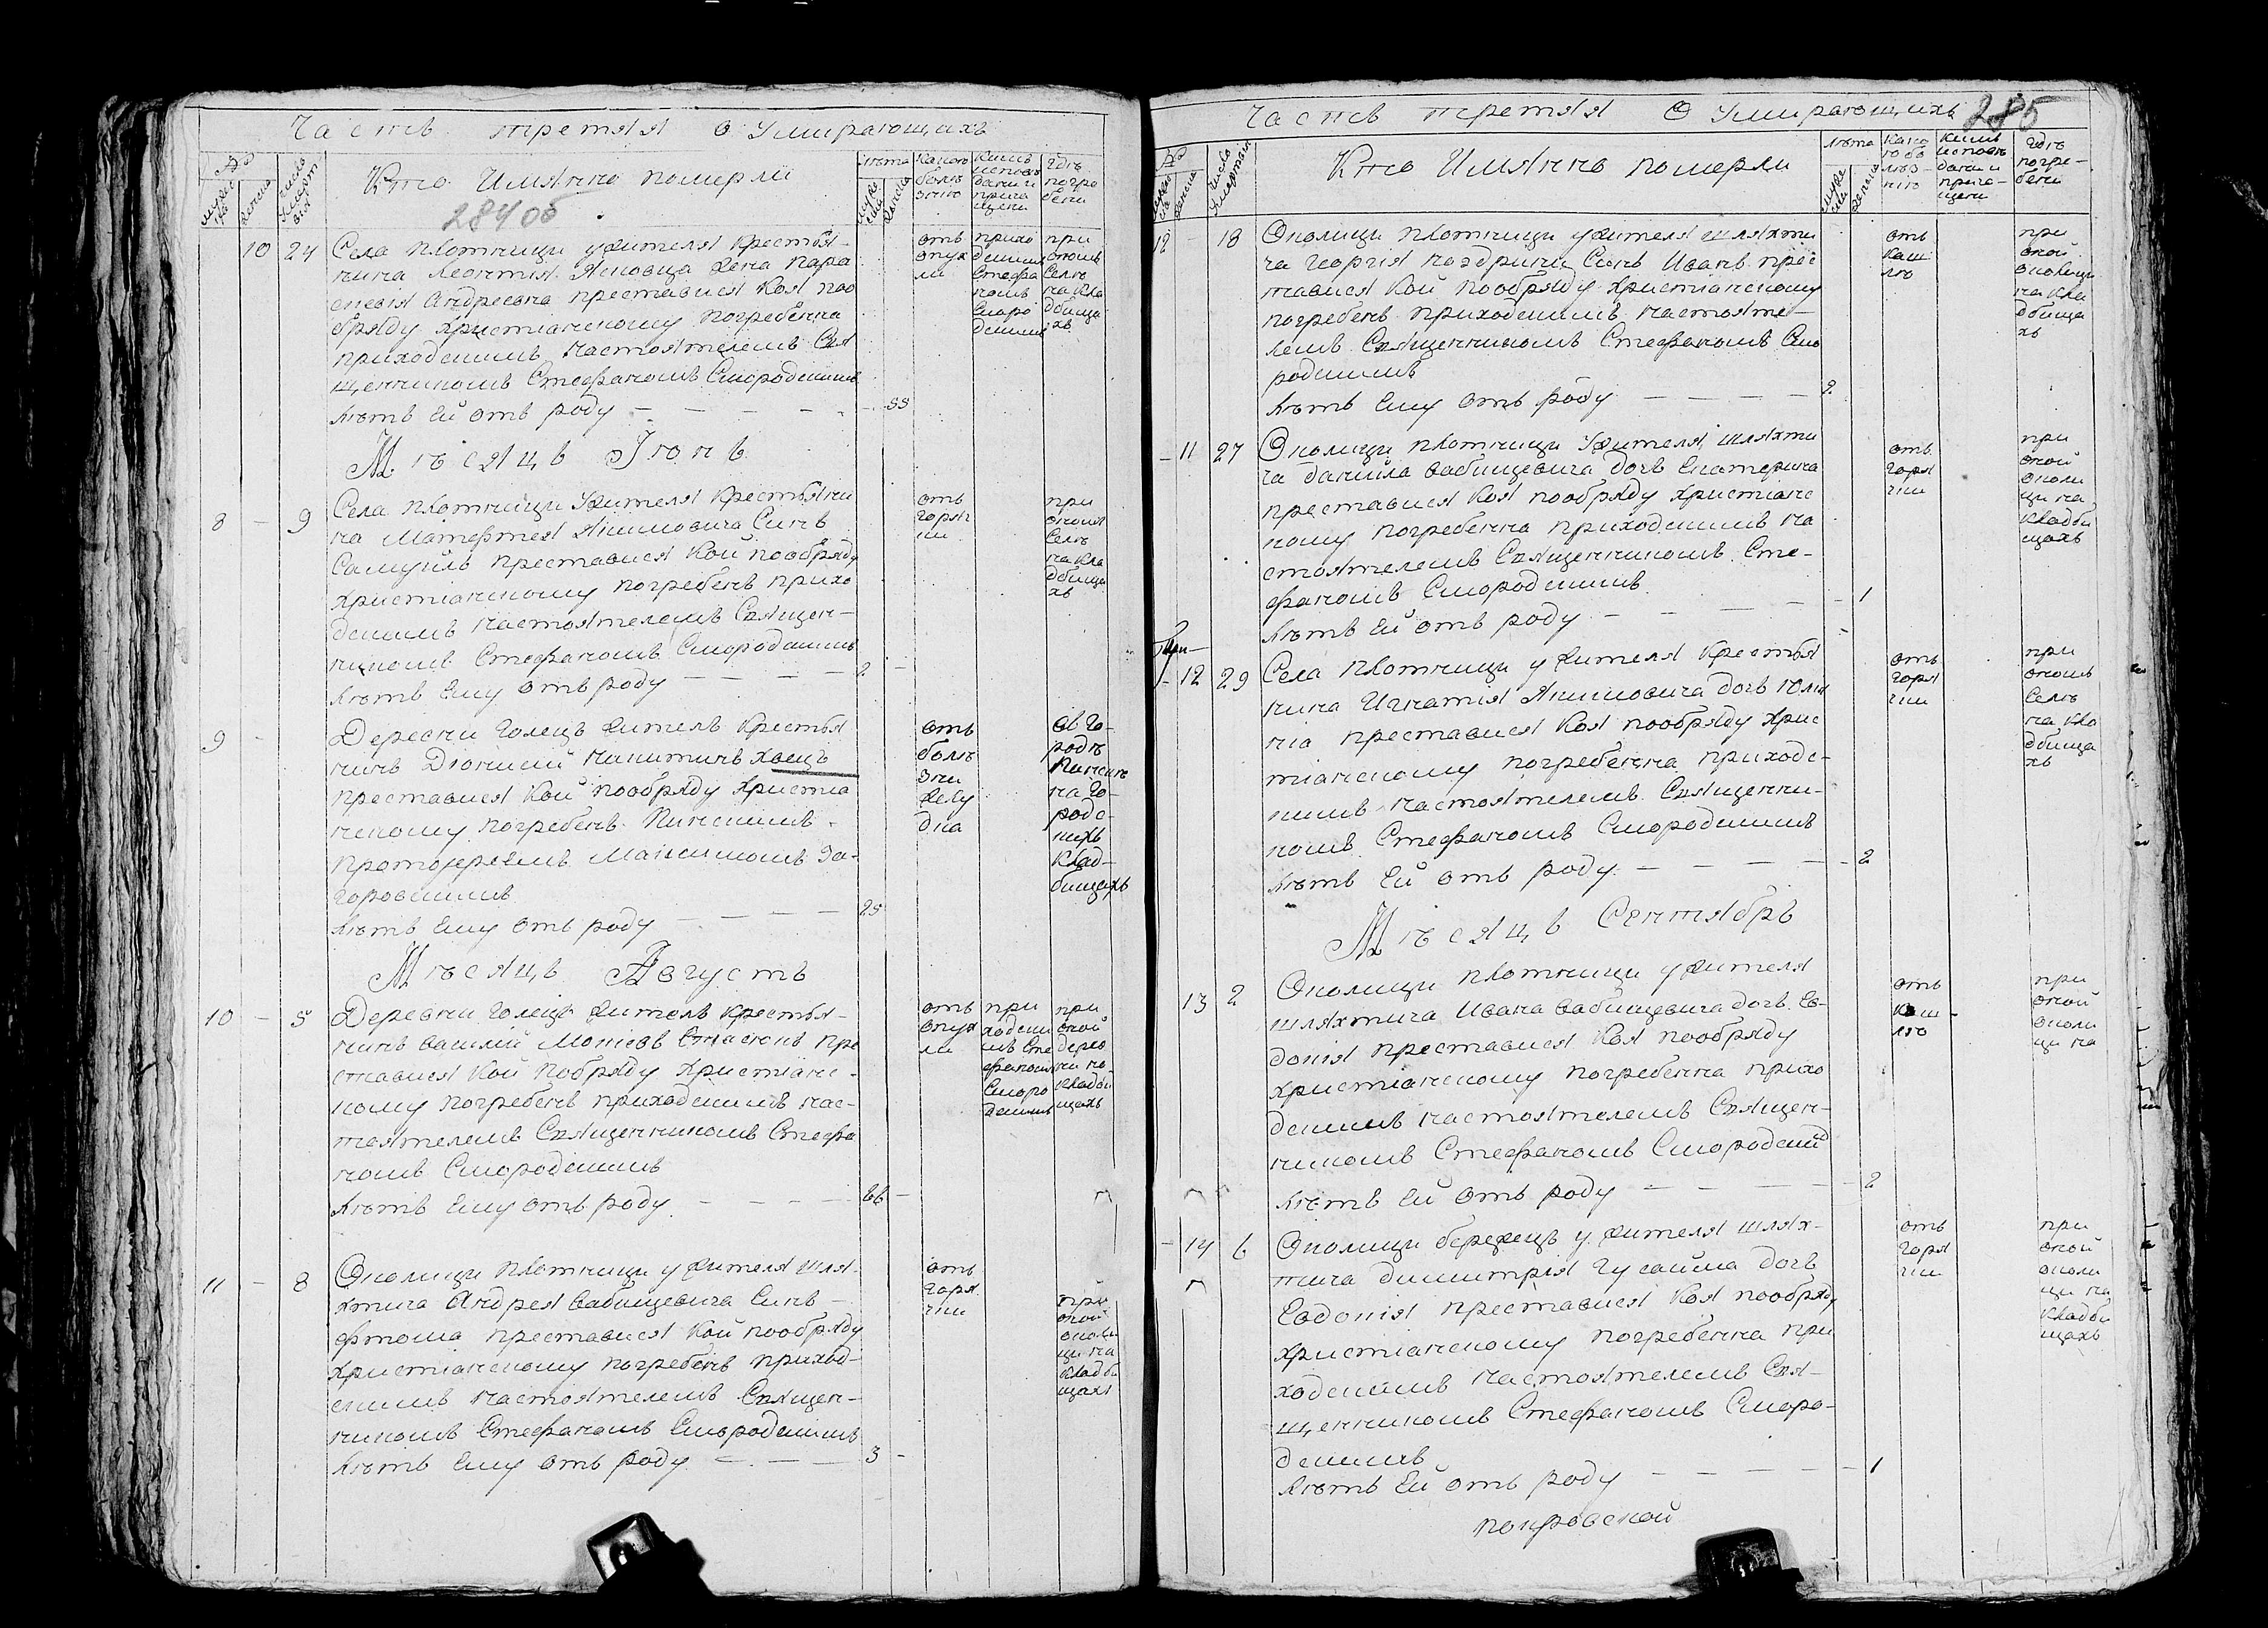 Часть третяя О Умирающихъ
№
мужеска
женска
число
смерти
Кто Имянно померли
284 об
лета
мужеска
женска
Какою
болѣ
знію
Кемъ
исповѣ
даны и
приоб
щены
Гдѣ
погре
бены
10 24
Села Плотницы у жителя Крестья-
нина Леонтія Ясковца Жена Пара
скевія Андреевна преставися Коя поо
бряду христіанскому погребенна
приходскимъ настоятелемъ Свя
щенникомъ Стефаномъ Смородскимъ
Лѣтъ Ей отъ роду — — — — 55
отъ
опух
ли
прихо
дскимъ
Стефа
номъ
Сморо
дскимъ
при
ономъ
Селѣ
на кла
дбища
хъ
Мѣсяцъ Іюнь
8 — 9
Села Плотницы Жителя Крестьяни
на Матефтея Якимовича Сынъ
Самуилъ преставися Кой пообряду
христіанскому погребенъ прихо
дскимъ настоятелемъ Священ-
никомъ Стефаномъ Смородскимъ
Лѣтъ Ему отъ роду — — — — 2 —
отъ
горяч
ки
при
ономъ
Селѣ
на кла
дбища
хъ
9 —
Деревни Голецъ житель Крестья
нинъ Діонисій Никитинъ Хвецъ
преставися Кой пообряду христіа
нскому погребенъ Пинскимъ
Протоіереемъ Максимомъ За-
горовскимъ
Лѣтъ Ему отъ роду — — — — 25
отъ
болѣ
зни
желу
дка
въ го-
родѣ
Пинске
на го-
родс-
кихъ
клад-
бищахъ
Мѣсяцъ Августъ
10 — 5
Деревни Голецъ житель Крестья-
нинъ Василій Моисевъ Стасюкъ пре
ставися Кой пообряду христіанс-
кому погребенъ приходскимъ нас-
тоятелемъ Священникомъ Стефа
номъ Смородскимъ
Лѣтъ Ему отъ роду — — — — 66 —
отъ
опух
ли
при
ходски
мъ Сте
фаномъ
Сморо
дскимъ
при
оной
дерев
ни на
кладби
щахъ
11 — 8
Околицы Плотницы у жителя шля-
хтича Андрея Вабищевича Сынъ
Фтома преставися Кой пообряду
христіанскому погребенъ приход-
скимъ настоятелемъ Священ-
никомъ Стефаномъ Смородскимъ
Лѣтъ Ему отъ роду — — — 3 —
отъ
горя
чки
при
оной
околи
цы на
кладби
щахъ
Часть третяя О Умирающихъ
285
№
мужеска
женска
число
смерти
Кто Имянно померли
лета
мужеска
женска
Како
ю бо
лѣз-
нію
Кемъ
исповѣ
даны и
приоб-
щены
Гдѣ
погре-
бены
12 18
Околицы Плотницы у жителя шляхти
ча Георгія Ноздрики Сынъ Иванъ прес
тавися Кой пообряду христіанскому
погребенъ приходскимъ настояте-
лемъ Священникомъ Стефаномъ Смо
родскимъ
Лѣтъ Ему отъ роду — — — — 2
отъ
каш
лю
при
оной
околицы
на кла
дбища
хъ
— 11 27
Околицы Плотницы Жителя шляхти
ча Даніила Вабищевича дочь Екатерина
преставися Коя пообряду христіанс
кому погребенна приходскимъ на
стоятелемъ Священникомъ Сте-
фаномъ Смородскимъ
Лѣтъ Ей отъ роду — — — — 1
отъ
горя
чки
при
оной
околи
цы на
кладби
щахъ
— 12 29
Села Плотницы у жителя Крестья
нина Игнатія Якимовича дочь Юліа
нія преставися Коя пообряду хрис
тіанскому погребенна приходс-
кимъ настоятелемъ Священни-
комъ Стефаномъ Смородскимъ
Лѣтъ Ей отъ роду — — — — 2
отъ
горя
чки
при
ономъ
Селѣ
на кла
дбища
хъ
Мѣсяцъ Сентябрь
13 2
Околицы Плотницы у жителя
шляхтича Ивана Вабищевича дочь Ев-
докія преставися Коя пообряду
христіанскому погребенна прихо
дскимъ настоятелемъ Священ-
никомъ Стефаномъ Смородским
Лѣтъ Ей отъ роду — — — — 2
отъ
каш-
лю
при
оной
околи
цы на
— 14 6
Околицы Бережецъ у жителя шлях-
тича Димитрія Гусаима дочь
Евдокія преставися Коя пообряду
христіанскому погребенна при
ходскимъ настоятелемъ Свя-
щенникомъ Стефаномъ Сморо-
дскимъ
Лѣтъ Ей отъ роду — — — — 1
отъ
горя
чки
при
оной
околи
цы на
кладби
щахъ
покровской